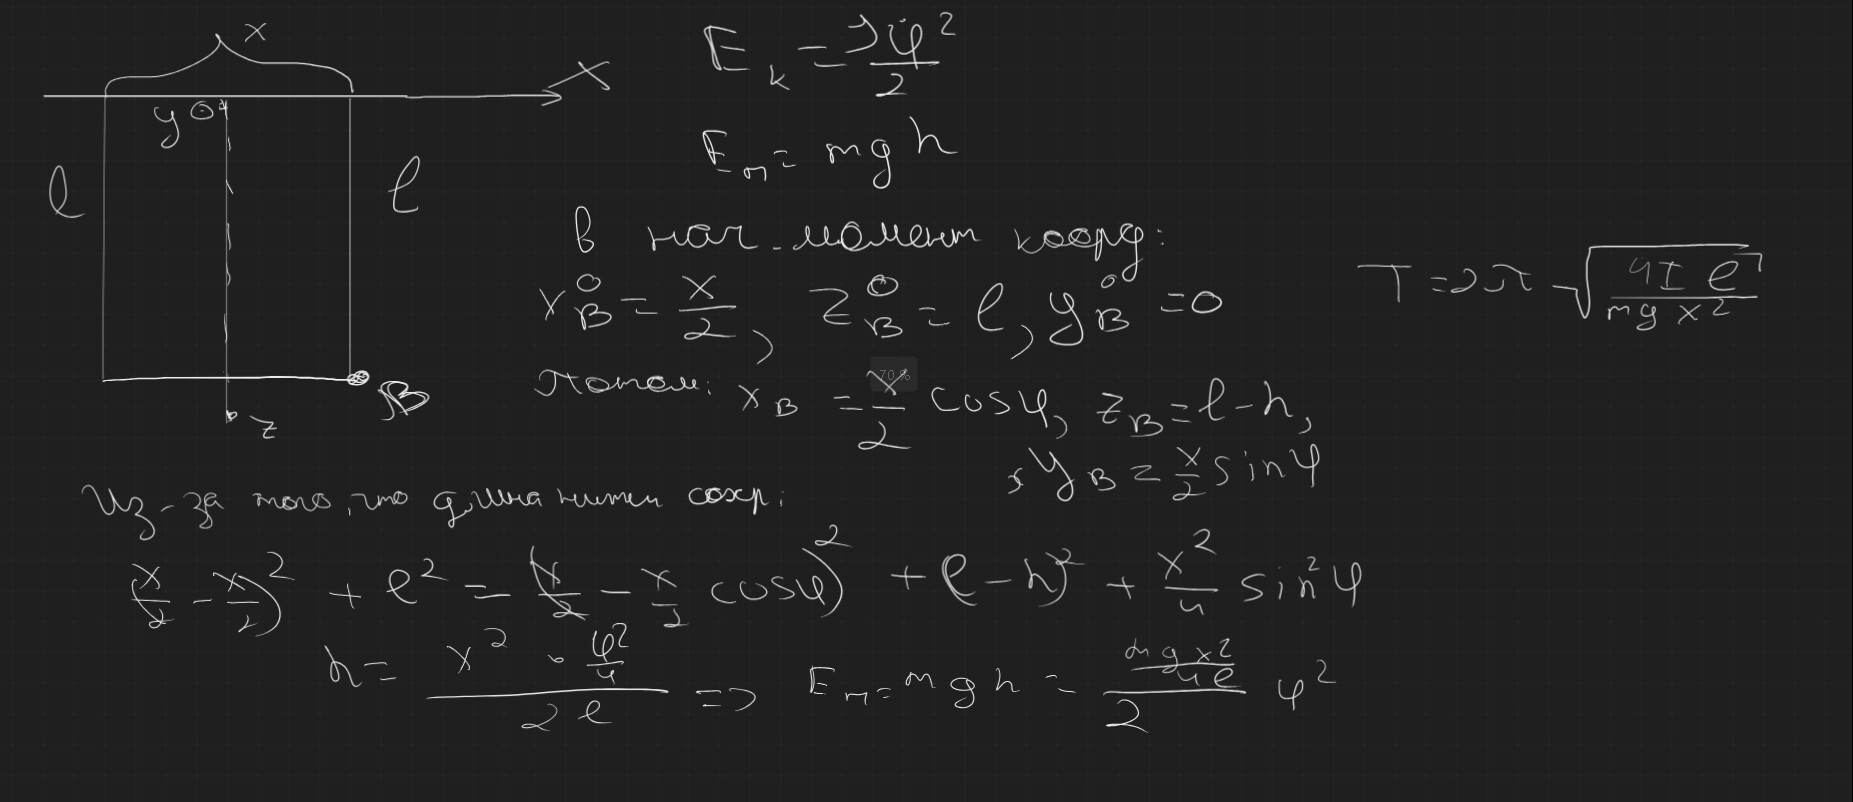 x
X
y 0
l
l
B
z
E_k = Jφ̇²/2
E_п = mgh
В нач. момент коорд:
x_B⁰ = x/2, z_B⁰ = l, y_B⁰ = 0
T = 2π √(4I l / mg x²)
70 %
Потом: x_B = x/2 cosφ, z_B = l - h,
y_B = x/2 sinφ
Из-за того, что длина нити сохр:
(x/2 - x/2)² + l² = (x/2 - x/2 cosφ)² + (l - h)² + x²/4 sin²φ
h = (x² · φ²/4) / 2l => E_п = mgh = (mgx²/4l)/2 φ²